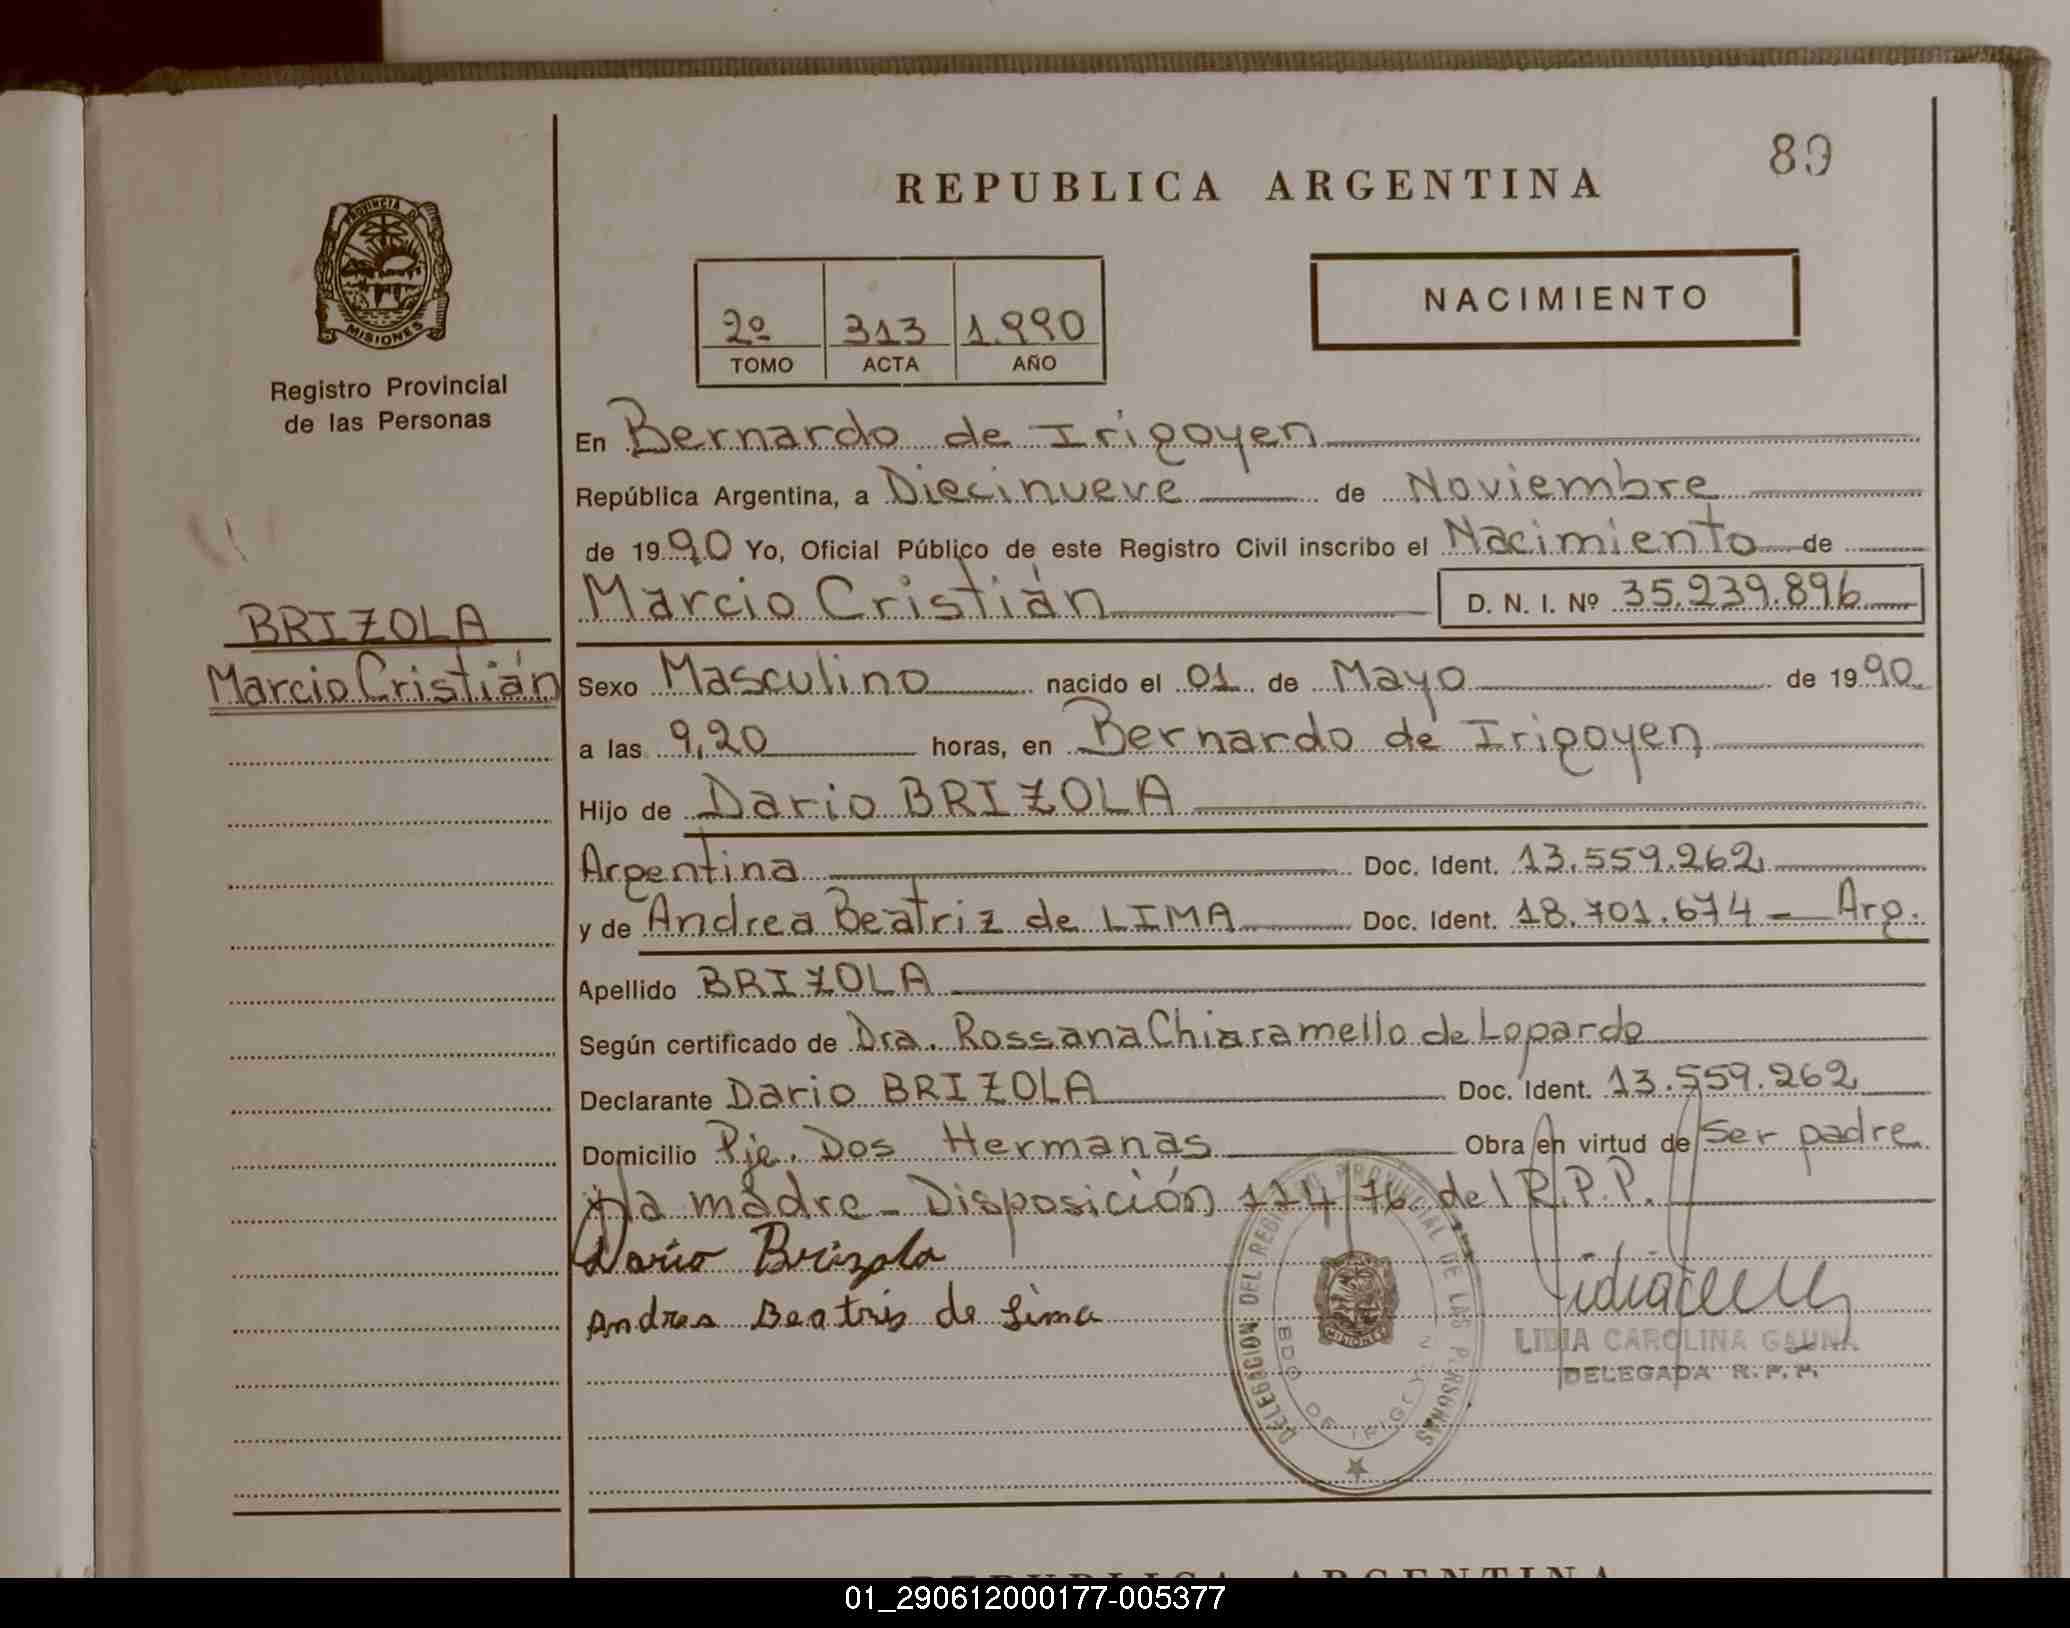 89
REPUBLICA ARGENTINA
PROVINCIA DE
MISIONES
Registro Provincial
de las Personas
2º 313 1.990
TOMO ACTA AÑO
NACIMIENTO
En Bernardo de Irigoyen
República Argentina, a Diecinueve de Noviembre
de 1990 Yo, Oficial Público de este Registro Civil inscribo el Nacimiento de
Marcio Cristián D. N. I. Nº 35.239.896
BRIZOLA
Marcio Cristián
Sexo Masculino nacido el 01 de Mayo de 1990
a las 9,20 horas, en Bernardo de Irigoyen
Hijo de Dario BRIZOLA
Argentina Doc. Ident. 13.559.262
y de Andrea Beatriz de LIMA Doc. Ident. 18.701.674 - Arg.
Apellido BRIZOLA
Según certificado de Dra. Rossana Chiaramello de Lopardo
Declarante Dario BRIZOLA Doc. Ident. 13.559.262
Domicilio Pje. Dos Hermanas Obra en virtud de Ser padre
y la madre - Disposición 114/76 del R.P.P.
Dario Brizola
Andrea Beatris de Lima
DELEGACION DEL REGISTRO PROVINCIAL DE LAS PERSONAS
BDO DE IRIGOYEN
MISIONES
LIDIA CAROLINA GAUNA
DELEGADA R. P. P.
REPUBLICA ARGENTINA
01_290612000177-005377